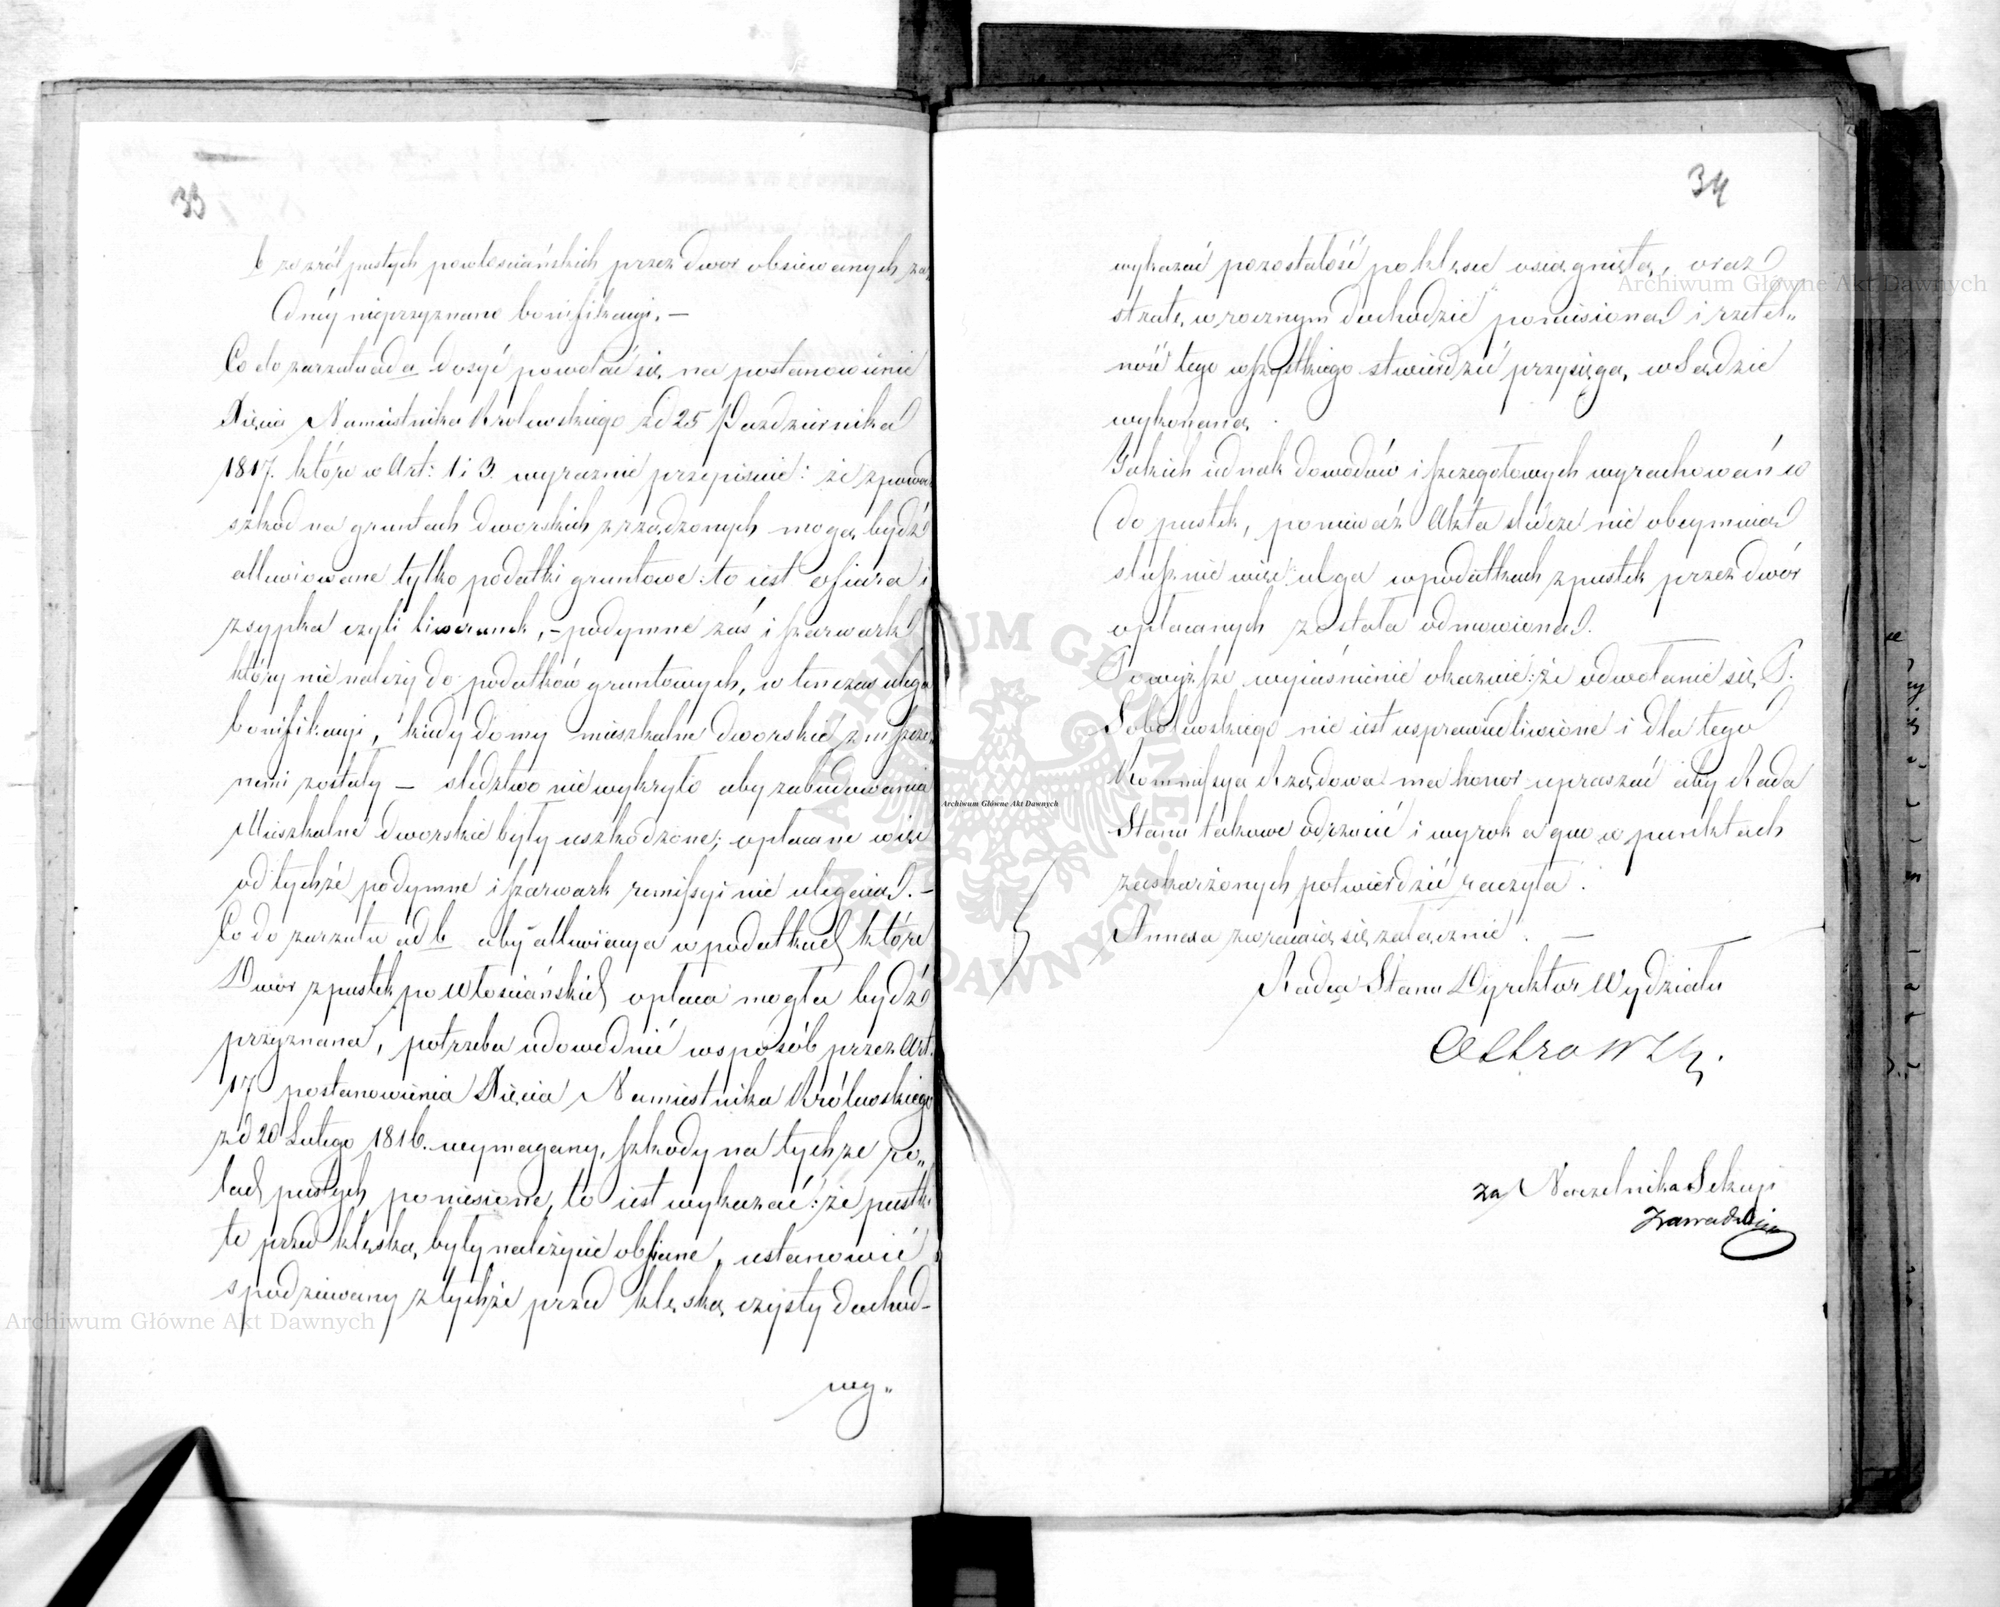 33
b że z ról pustych powłościańskich przez dwór obsiewanych ża„
dnéy nieprzyznano bonifikacyi. —
Co do zarzutu ad a dosyć powołać się na postanowienie
Xięcia Namiestnika Królewskiego z d 25 Pazdziernika
1817. które w Art: 1 i 3. wyraznie przepisuie: że z powodu
szkód na gruntach dworskich zrządzonych mogą bydź
allewiowane tylko podatki gruntowe: to iest ofiara i
zsypka czyli liwerunek, – podymne zaś i szarwark
który nie należy do podatków gruntowych, w tenczas ulega
bonifikacyi, kiedy domy mieszkalne dworskie zniszczo„
nemi zostały — sledztwo nie wykryło aby zabudowania
Mieszkalne dworskie były uszkodzone; opłacane więc
od tychże podymne i szarwark remissyi nie ulegaią. –
Co do zarzutu ad b aby allewiacya w podatkach które
Dwór z pustek po Włościańskich opłaca mogła bydź
przyznana, potrzeba udowodnić w sposób przez Art.
17 postanowienia Xięcia Namiestnika Królewskiego
z d 20 Lutego 1816. wymagany, szkody na tychże ro„
lach pustych poniesione, to iest wykazać: że pustki
te przed klęską, były należycie obsiane, ustanowić
spodziewany z tychże przed klęską czysty dochód –
wy„
34
wykazać pozostałość po klęsce osiągniętą, oraz
stratę w rocznym dochodzie poniesioną i rzetel„
ność tego wszystkiego stwierdzić przysięgą, w Sądzie
wykonaną.
Takich iednak dowodów i szczegołowych wyrachowań w
do pustek, ponieważ Akta sledcze nie obeymuią
słusznie więc ulga w podatkach z pustek przez dwór
opłacanych została odmowioną.
Powyższe wyiaśnienie okazuie: że odwołanie się P.
Sobolewskiego nie iest usprawiedliwione i dla tego
Kommissya Rządowa ma honor upraszać aby Rada
Stanu takowe odrzucić i wyrok a quo w punktach
zaskarżonych potwierdzić raczyła.
Annexa zwracaią się załącznie. —
Radca Stanu Dyrektor Wydziału
za Naczelnika Sekcyi
Archiwum Główne Akt Dawnych
Archiwum Główne Akt Dawnych
Archiwum Główne Akt Dawnych
ARCHIWUM GŁÓWNE AKT DAWNYCH